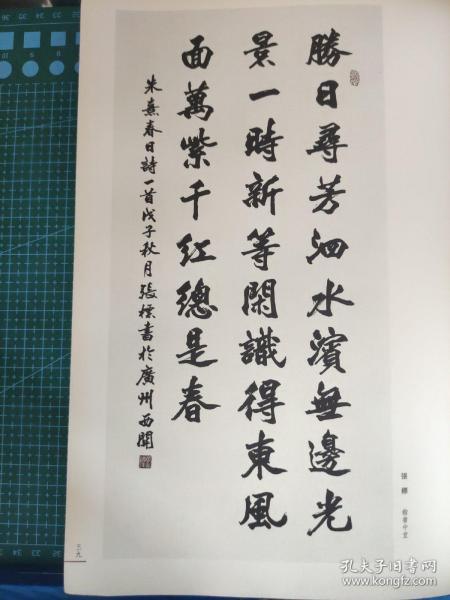 勝日尋芳泗水濱無邊光
景一時新等閑識得東風
面萬紫千紅總是春
朱熹春日詩一首戊子秋月張標書於廣州西關
張標 楷書中堂
三九
孔夫子旧书网